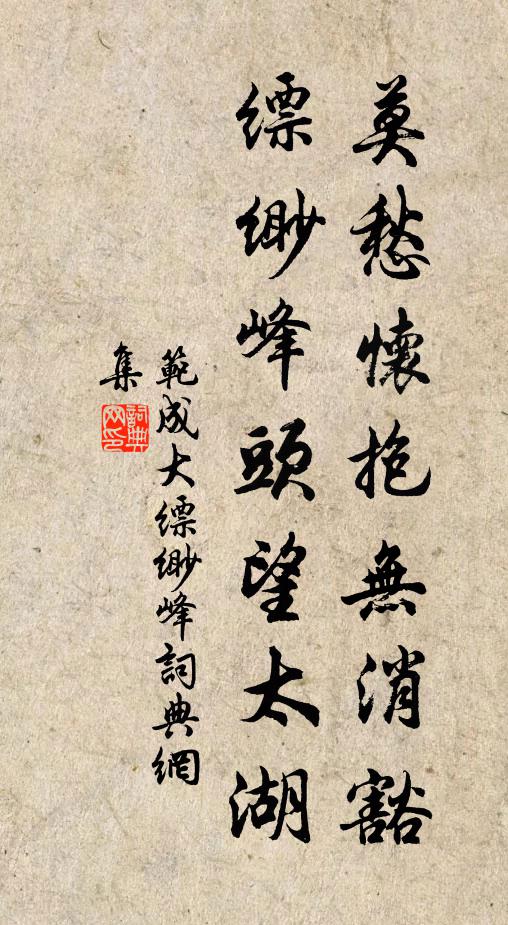 莫愁懷抱無消豁
縹緲峰頭望太湖
範成大縹緲峰詞典網
集
詞典网印